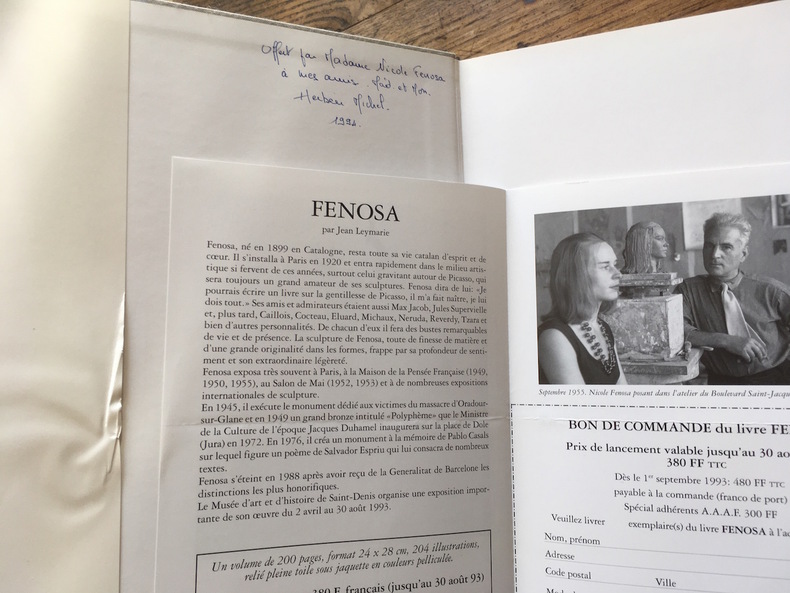 Offert par Madame Nicole Fenosa
à mes amis Mad. et Mon.
Herben Michel.
FENOSA
par Jean Leymarie
Fenosa, né en 1899 en Catalogne, resta toute sa vie catalan d'esprit et de
cœur. Il s'installa à Paris en 1920 et entra rapidement dans le milieu artis-
tique si fervent de ces années, surtout celui gravitant autour de Picasso, qui
sera toujours un grand amateur de ses sculptures. Fenosa dira de lui: «Je
pourrais écrire un livre sur la gentillesse de Picasso, il m'a fait naître, je lui
dois tout.» Ses amis et admirateurs étaient aussi Max Jacob, Jules Supervielle
et, plus tard, Caillois, Cocteau, Eluard, Michaux, Neruda, Reverdy, Tzara et
bien d'autres personnalités. De chacun d'eux il fera des bustes remarquables
de vie et de présence. La sculpture de Fenosa, toute de finesse de matière et
d'une grande originalité dans les formes, frappe par sa profondeur de senti-
ment et son extraordinaire légèreté.
Fenosa exposa très souvent à Paris, à la Maison de la Pensée Française (1949,
1950, 1955), au Salon de Mai (1952, 1953) et à de nombreuses expositions
internationales de sculpture.
En 1945, il exécute le monument dédié aux victimes du massacre d'Oradour-
sur-Glane et en 1949 un grand bronze intitulé «Polyphème» que le Ministre
de la Culture de l'époque Jacques Duhamel inaugurera sur la place de Dole
(Jura) en 1972. En 1976, il créa un monument à la mémoire de Pablo Casals
sur lequel figure un poème de Salvador Espriu qui lui consacra de nombreux
textes.
Fenosa s'éteint en 1988 après avoir reçu de la Generalitat de Barcelone les
distinctions les plus honorifiques.
Le Musée d'art et d'histoire de Saint-Denis organise une exposition impor-
tante de son œuvre du 2 avril au 30 août 1993.
Un volume de 200 pages, format 24 x 28 cm, 204 illustrations,
relié pleine toile sous jaquette en couleurs pelliculée.
380 F. français (jusqu'au 30 août 93)
Septembre 1955. Nicole Fenosa posant dans l'atelier du Boulevard Saint-Jacqu
BON DE COMMANDE du livre FE
Prix de lancement valable jusqu'au 30 ao
380 FF TTC
Dès le 1er septembre 1993: 480 FF TTC
payable à la commande (franco de port)
Spécial adhérents A.A.A.F. 300 FF
Veuillez livrer exemplaire(s) du livre FENOSA à l'a
Nom, prénom
Adresse
Code postal Ville